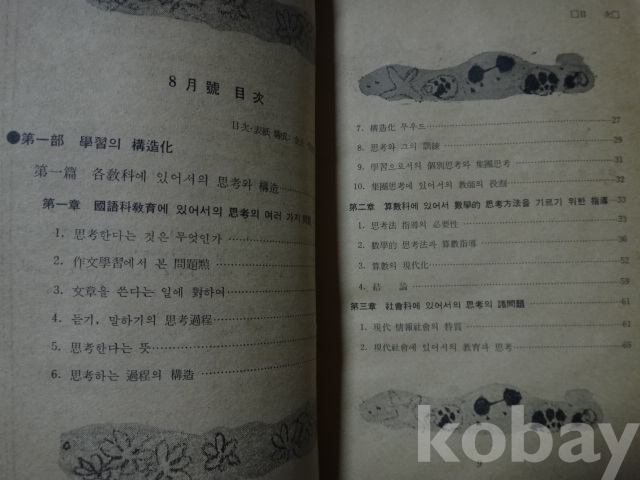 8月號 目次
目次·表紙
●第一部 學習의 構造化
第一篇 各敎科에 있어서의 思考와 構造
第一章 國語科敎育에 있어서의 思考의 여러 가지
1. 思考한다는 것은 무엇인가
2. 作文學習에서 본 問題點
3. 文章을 쓴다는 일에 對하여
4. 듣기, 말하기의 思考過程
5. 思考한다는 뜻
6. 思考하는 過程의 構造
目 次
7. 構造化 무우드 27
8. 思考와 그의 訓練 29
9. 學習으로서의 個別思考와 集團思考 31
10. 集團思考에 있어서의 敎師의 役割
第二章 算數科에 있어서 數學的 思考方法을 기르기 위한 指導
1. 思考法 指導의 必要性 33
2. 數學的 思考法과 算數指導 36
3. 算數의 現代化 52
4. 結 論 59
第三章 社會科에 있어서의 思考의 諸問題 61
1. 現代 情報社會의 特質 61
2. 現代社會에 있어서의 敎育과 思考 65
kobay